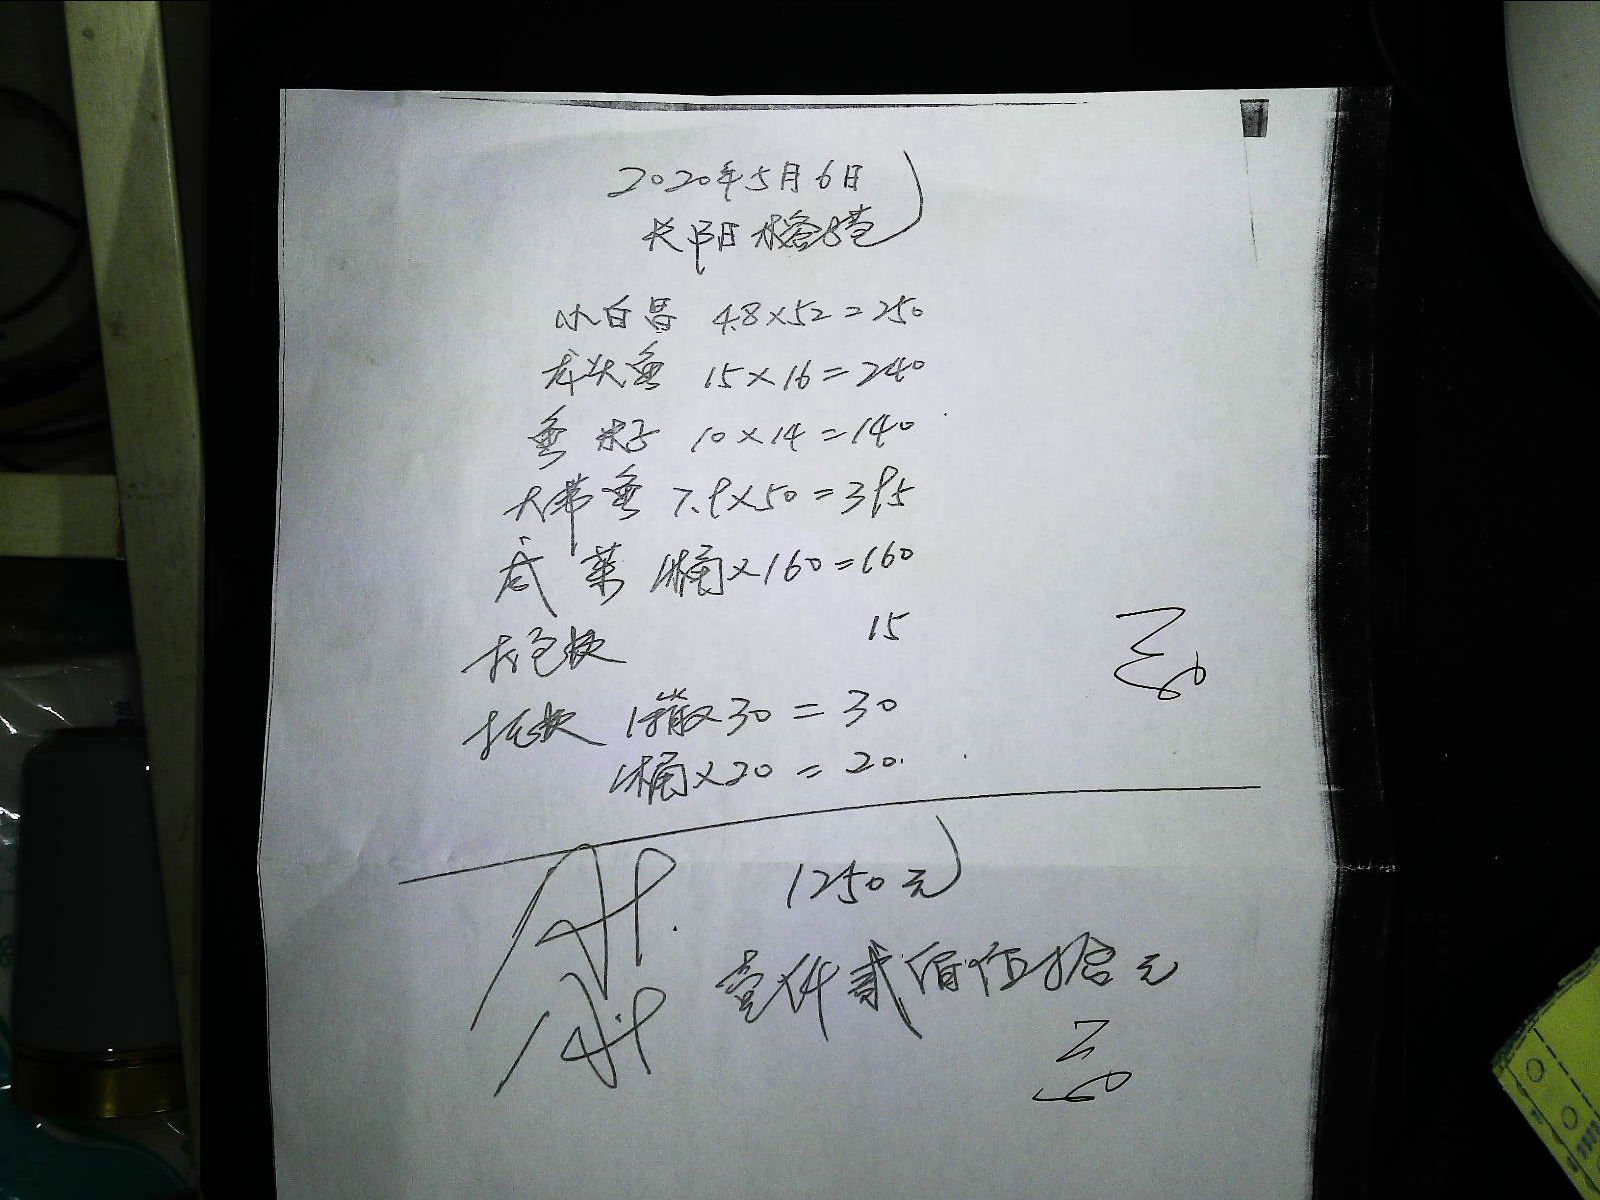 2020年5月6日
长阳榕港
小白昌 4.8×52=250
龙头鱼 15×16=240
鱼籽 10×14=140
大带鱼 7.9×50=395
咸菜 1桶×160=160
打包块 15
托块 1箱×30=30
1桶×20=20.
1250元
壹仟贰佰伍拾元